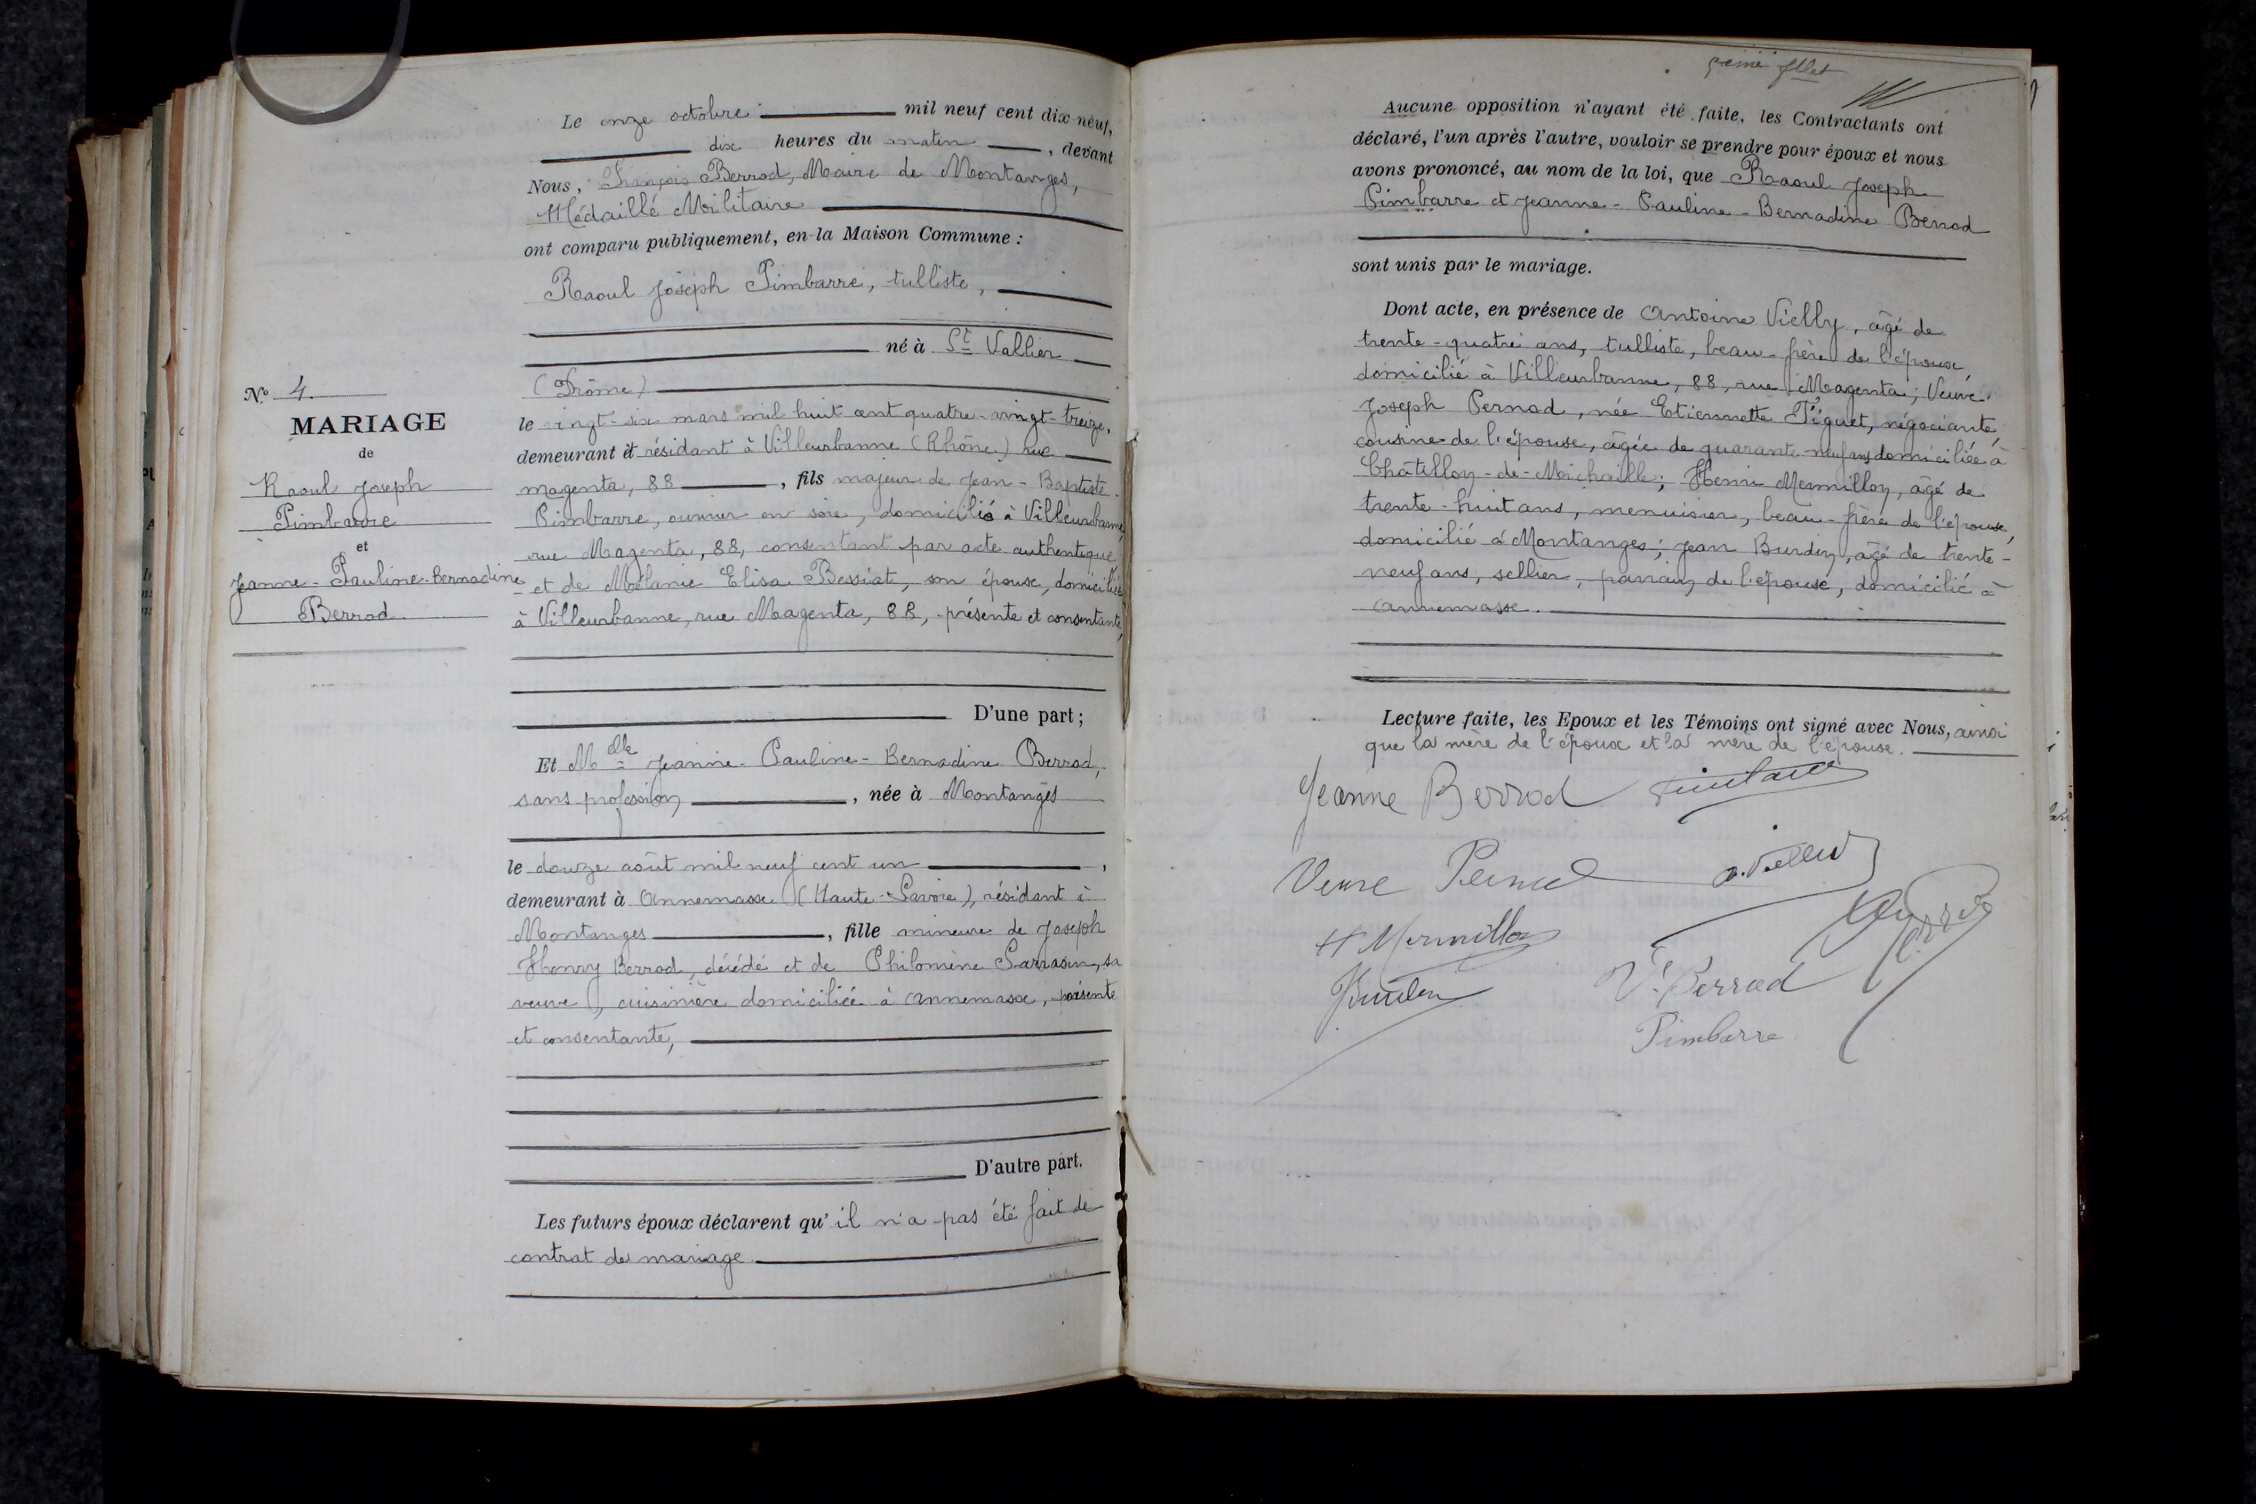 Le onze octobre mil neuf cent dix-neuf,
dix heures du matin, devant
Nous, François Berrod, Maire de Montanges,
Médaillé Militaire
ont comparu publiquement, en la Maison Commune :
Raoul Joseph Pimbarre, tulliste,
né à St Vallier
(Drôme)
le vingt-six mars mil huit cent quatre-vingt-treize,
demeurant et résidant à Villeurbanne (Rhône) rue
magenta, 88, fils majeur de Jean-Baptiste
Pimbarre, ouvrier en soie, domicilié à Villeurbanne,
rue Magenta, 88, consentant par acte authentique
et de Mélanie Elisa Bessiat, son épouse, domiciliée
à Villeurbanne, rue Magenta, 88, présente et consentante,
D'une part ;
Et Mdlle Jeanne-Pauline-Bernadine Berrod,
sans profession, née à Montanges
le douze août mil neuf cent un,
demeurant à Annemasse (Haute-Savoie), résidant à
Montanges, fille mineure de Joseph
Henry Berrod, décédé et de Philomène Sarrasin, sa
veuve, cuisinière domiciliée à Annemasse, présente
et consentante,
D'autre part.
Les futurs époux déclarent qu'il n'a pas été fait de
contrat de mariage
No 4
MARIAGE
de
Raoul Joseph
Pimbarre
et
Jeanne-Pauline-Bernadine
Berrod
Aucune opposition n'ayant été faite, les Contractants ont
déclaré, l'un après l'autre, vouloir se prendre pour époux et nous
avons prononcé, au nom de la loi, que Raoul Joseph
Pimbarre et Jeanne-Pauline-Bernadine Berrod
sont unis par le mariage.
Dont acte, en présence de Antoine Vielly, âgé de
trente-quatre ans, tulliste, beau-frère de l'épouse,
domicilié à Villeurbanne, 88, rue Magenta; Veuve
Joseph Pernod, née Etiennette Piguet, négociante,
cousine de l'épouse, âgée de quarante-neuf ans domiciliée à
Châtillon-de-Michaille; Henri Mermillon, âgé de
trente-huit ans, menuisier, beau-frère de l'épouse,
domicilié à Montanges; Jean Burdin, âgé de trente-
neuf ans, sellier, parrain de l'épouse, domicilié à
Annemasse.
Lecture faite, les Epoux et les Témoins ont signé avec Nous, ainsi
que la mère de l'époux et la mère de l'épouse.
Jeanne Berrod Pimbarre
Veuve Pernod A. Vielly
H Mermillon
JBurdin Ve Berrod Berrod
Pimbarre